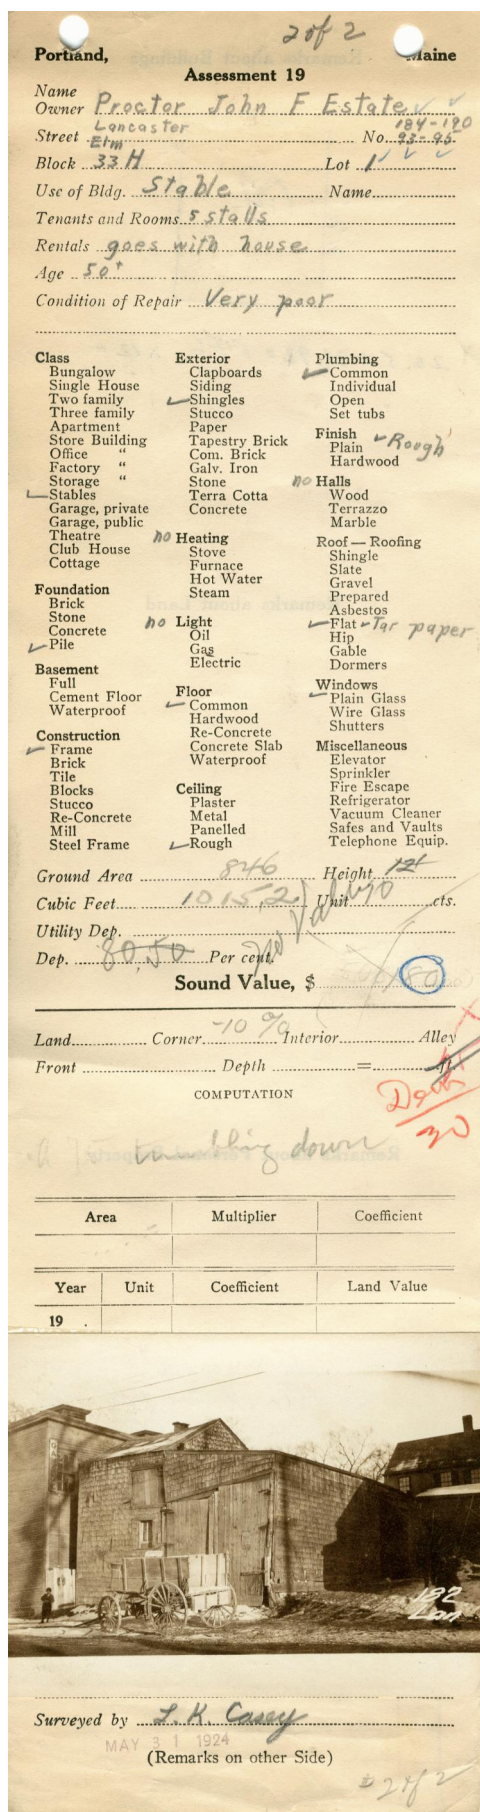 2 of 2
Portland, Maine
Assessment 19
Name
Owner Proctor John F Estate
Street Lancaster 184-190
Elm No. 93-95
Block 33 H Lot 1
Use of Bldg. Stable Name
Tenants and Rooms 5 stalls
Rentals goes with house
Age 50+
Condition of Repair Very poor
Class
Bungalow
Single House
Two family
Three family
Apartment
Store Building
Office "
Factory "
Storage "
Stables
Garage, private
Garage, public
Theatre
Club House
Cottage
Foundation
Brick
Stone
Concrete
Pile
Basement
Full
Cement Floor
Waterproof
Construction
Frame
Brick
Tile
Blocks
Stucco
Re-Concrete
Mill
Steel Frame
Exterior
Clapboards
Siding
Shingles
Stucco
Paper
Tapestry Brick
Com. Brick
Galv. Iron
Stone
Terra Cotta
Concrete
no Heating
Stove
Furnace
Hot Water
Steam
no Light
Oil
Gas
Electric
Floor
Common
Hardwood
Re-Concrete
Concrete Slab
Waterproof
Ceiling
Plaster
Metal
Panelled
Rough
Plumbing
Common
Individual
Open
Set tubs
Finish
Plain Rough
Hardwood
no Halls
Wood
Terrazzo
Marble
Roof — Roofing
Shingle
Slate
Gravel
Prepared
Asbestos
Flat Tar paper
Hip
Gable
Dormers
Windows
Plain Glass
Wire Glass
Shutters
Miscellaneous
Elevator
Sprinkler
Fire Escape
Refrigerator
Vacuum Cleaner
Safes and Vaults
Telephone Equip.
Ground Area 846 Height 12
Cubic Feet 10152 Unit cts.
No Value
Utility Dep.
Dep. 80.50 Per cent.
Sound Value, $ 80
-10 %
Land Corner Interior Alley
Front Depth = ft.
COMPUTATION
tumbling down
Area Multiplier Coefficient
Year Unit Coefficient Land Value
19 .
182
Lan
Surveyed by L. K. Casey
MAY 31 1924
(Remarks on other Side)
2 of 2